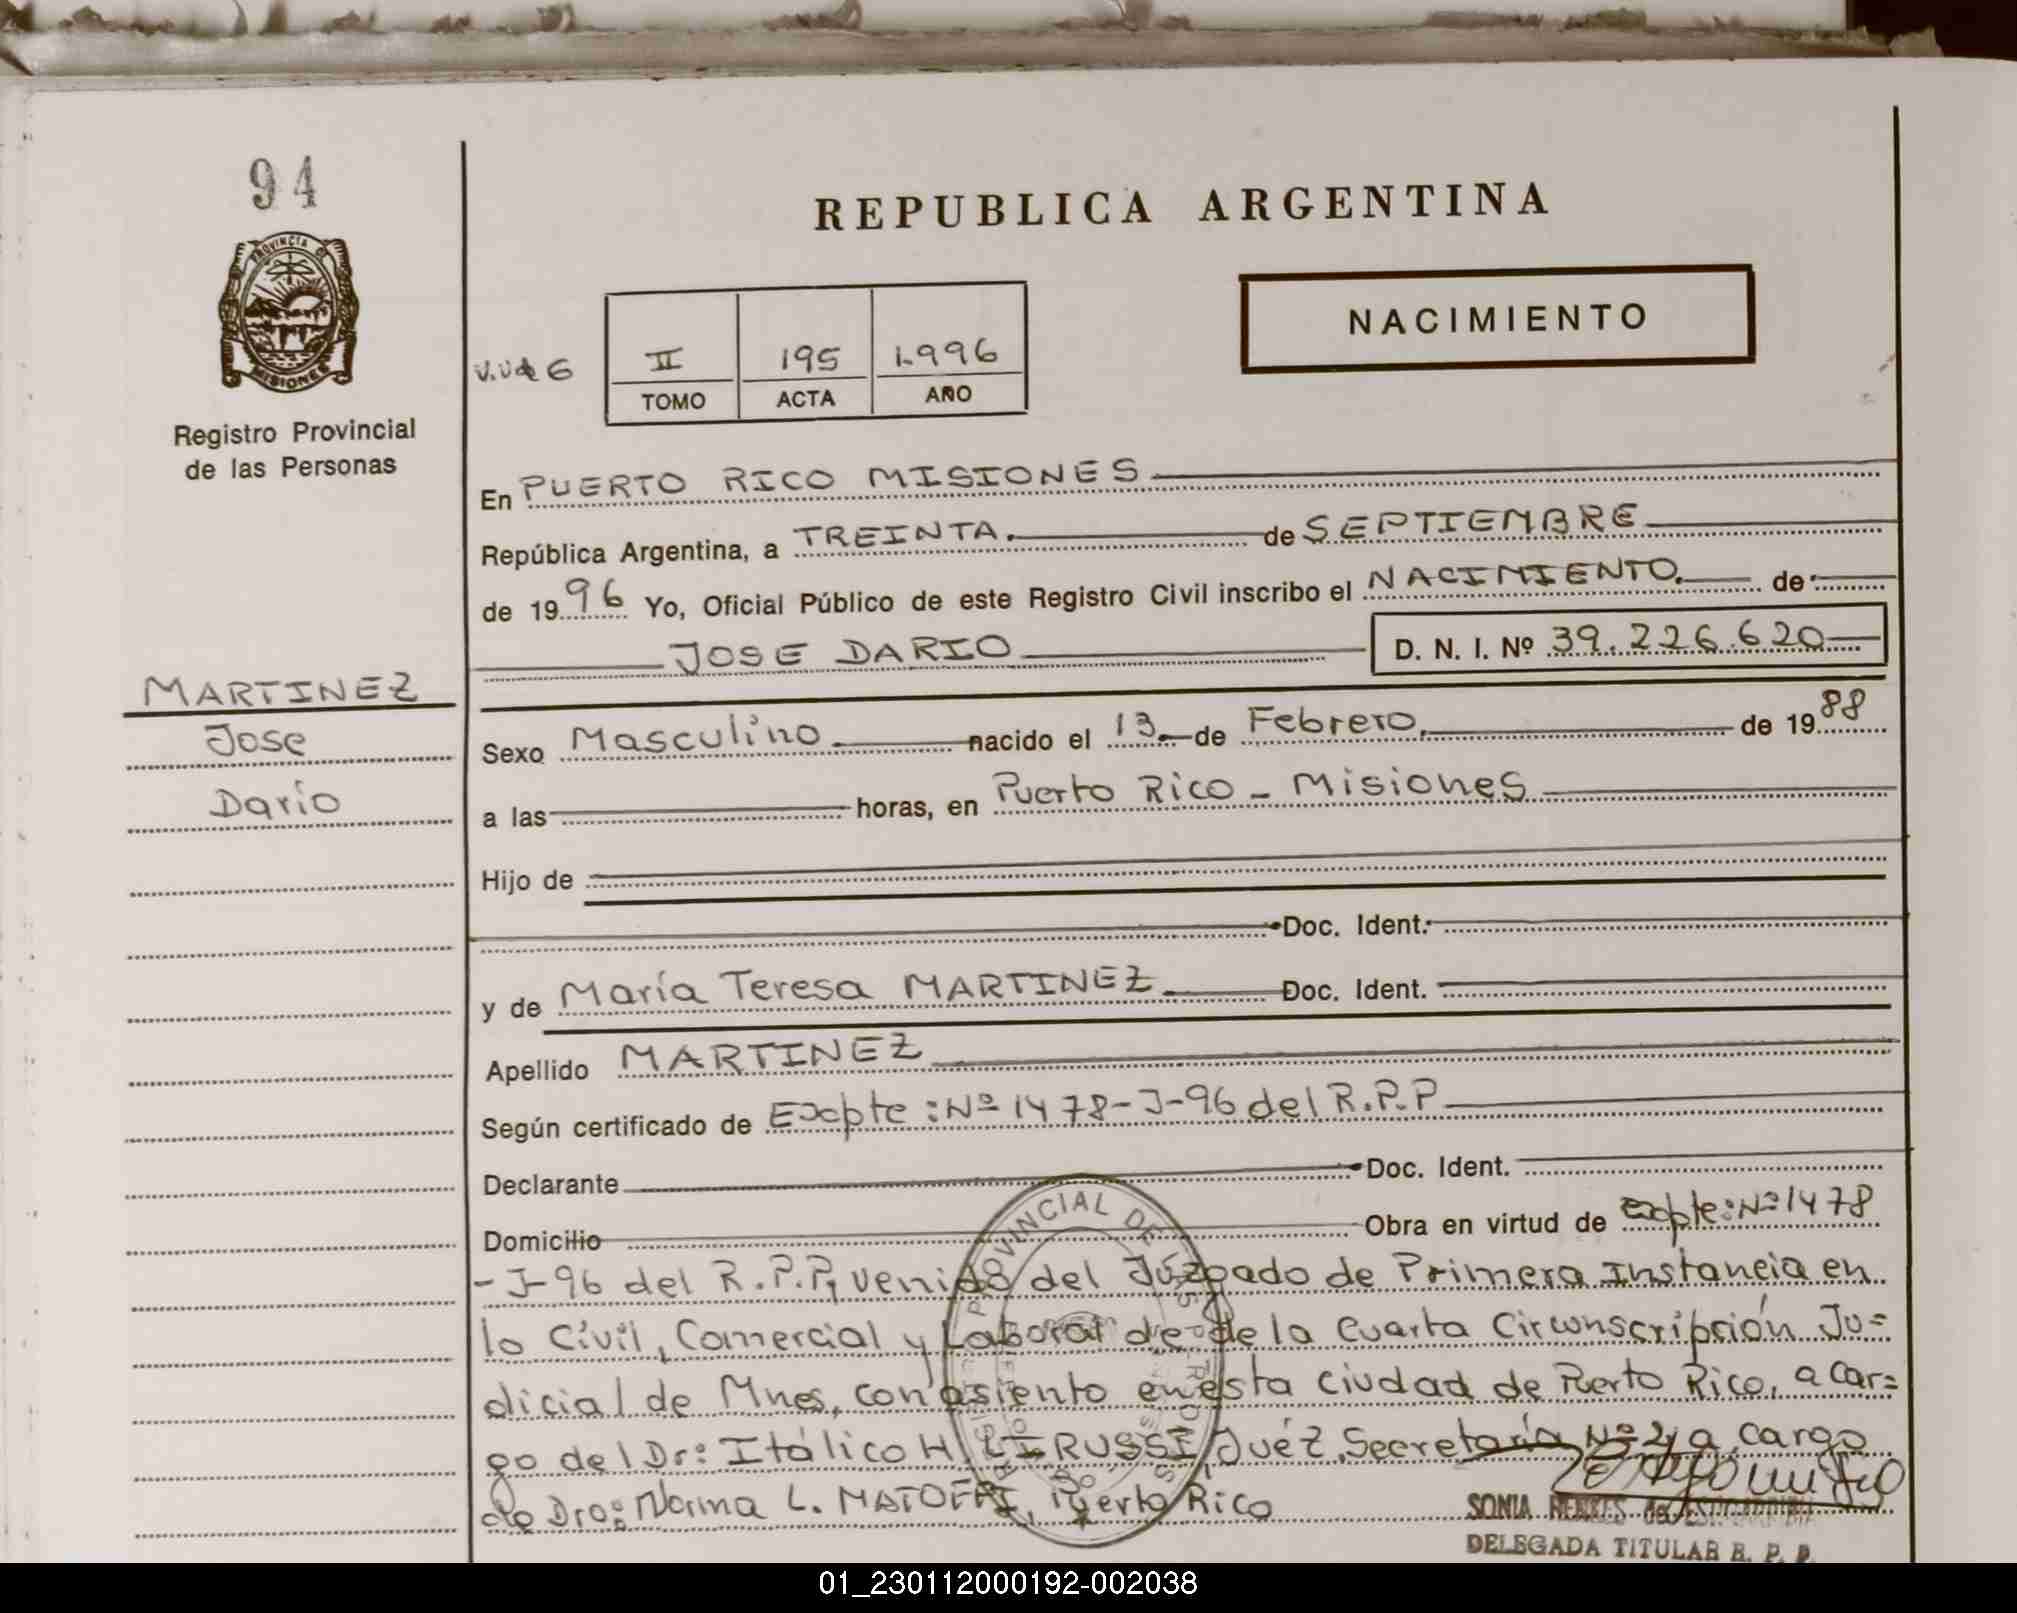 94
REPUBLICA ARGENTINA
PROVINCIA DE
MISIONES
Registro Provincial
de las Personas
NACIMIENTO
II 195 1.996
TOMO ACTA AÑO
En PUERTO RICO MISIONES
República Argentina, a TREINTA. de SEPTIEMBRE
de 1996 Yo, Oficial Público de este Registro Civil inscribo el NACIMIENTO. de
JOSE DARIO D. N. I. Nº 39.226.620
MARTINEZ
Jose
Darío
Sexo Masculino nacido el 13 de Febrero. de 1988
a las horas, en Puerto Rico - Misiones
Hijo de
Doc. Ident.
y de María Teresa MARTINEZ Doc. Ident.
Apellido MARTINEZ
Según certificado de Expte: Nº 1478-J-96 del R.P.P
Declarante Doc. Ident.
Domicilio Obra en virtud de expte: Nº 1478
-J-96 del R.P.P, venido del Juzgado de Primera Instancia en
lo Civil, Comercial y Laboral de de la Cuarta Circunscripción Ju=
dicial de Mnes, con asiento en esta ciudad de Puerto Rico, a car=
go del Dr: Itálico H. LI RUSSI, Juéz, Secretaría Nº 2, a cargo
de Dra: Norma L. Puerto Rico
SONIA de
DELEGADA TITULAR R. P. P.
01_230112000192-002038